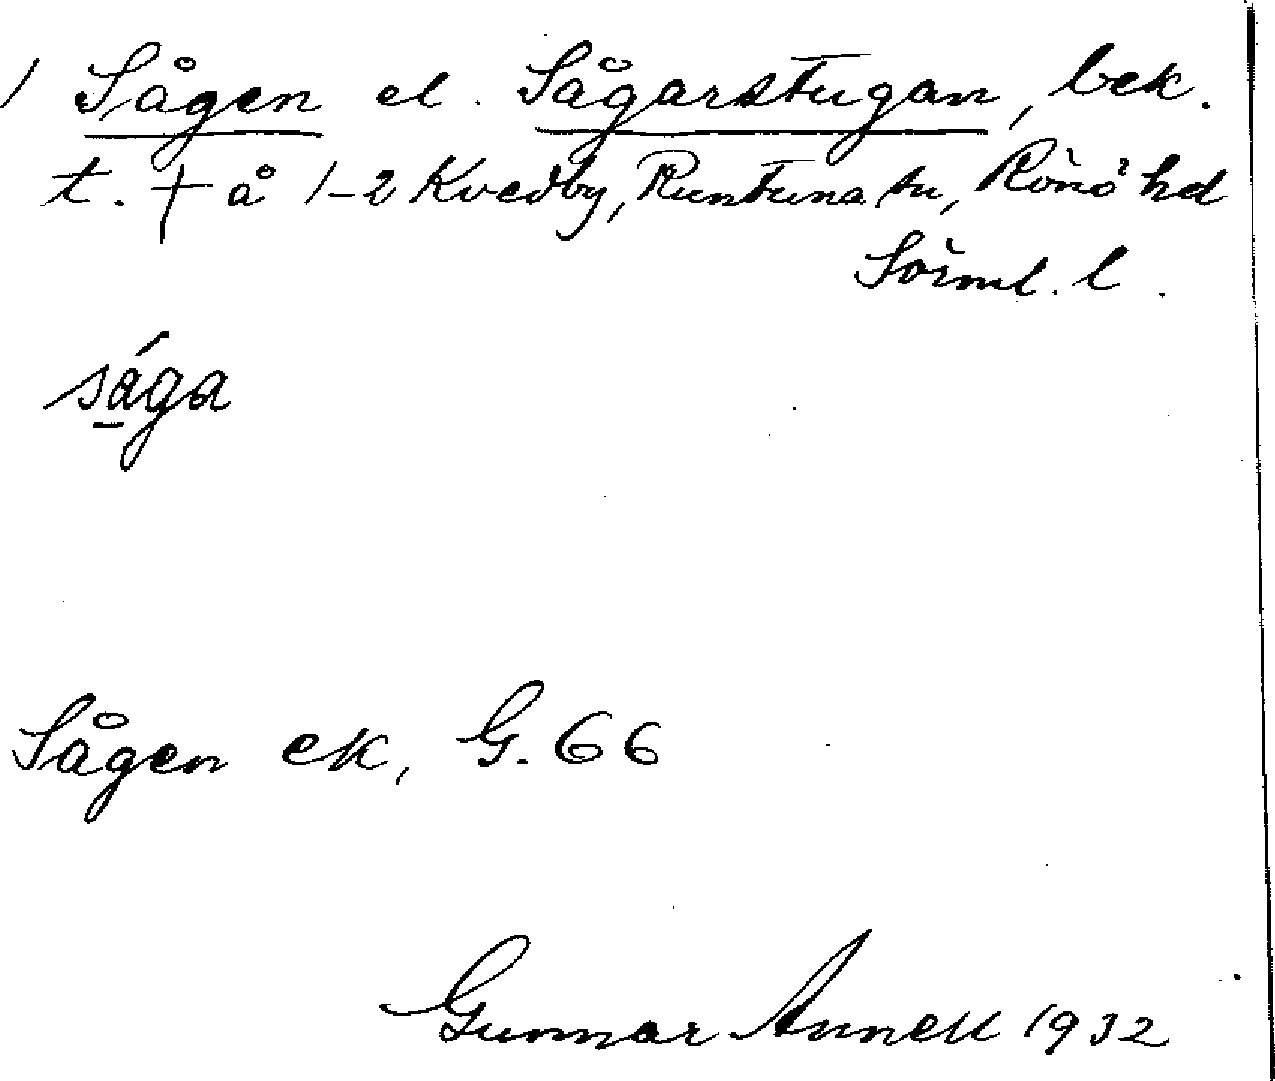 / Sågen el. Sågarstugan, bek.
t. + å 1-2 Kvedby, Runtuna sn, Rönö hd
Sörml. l.
sága
Sågen ek, G. 66
Gunnar Annell 1932